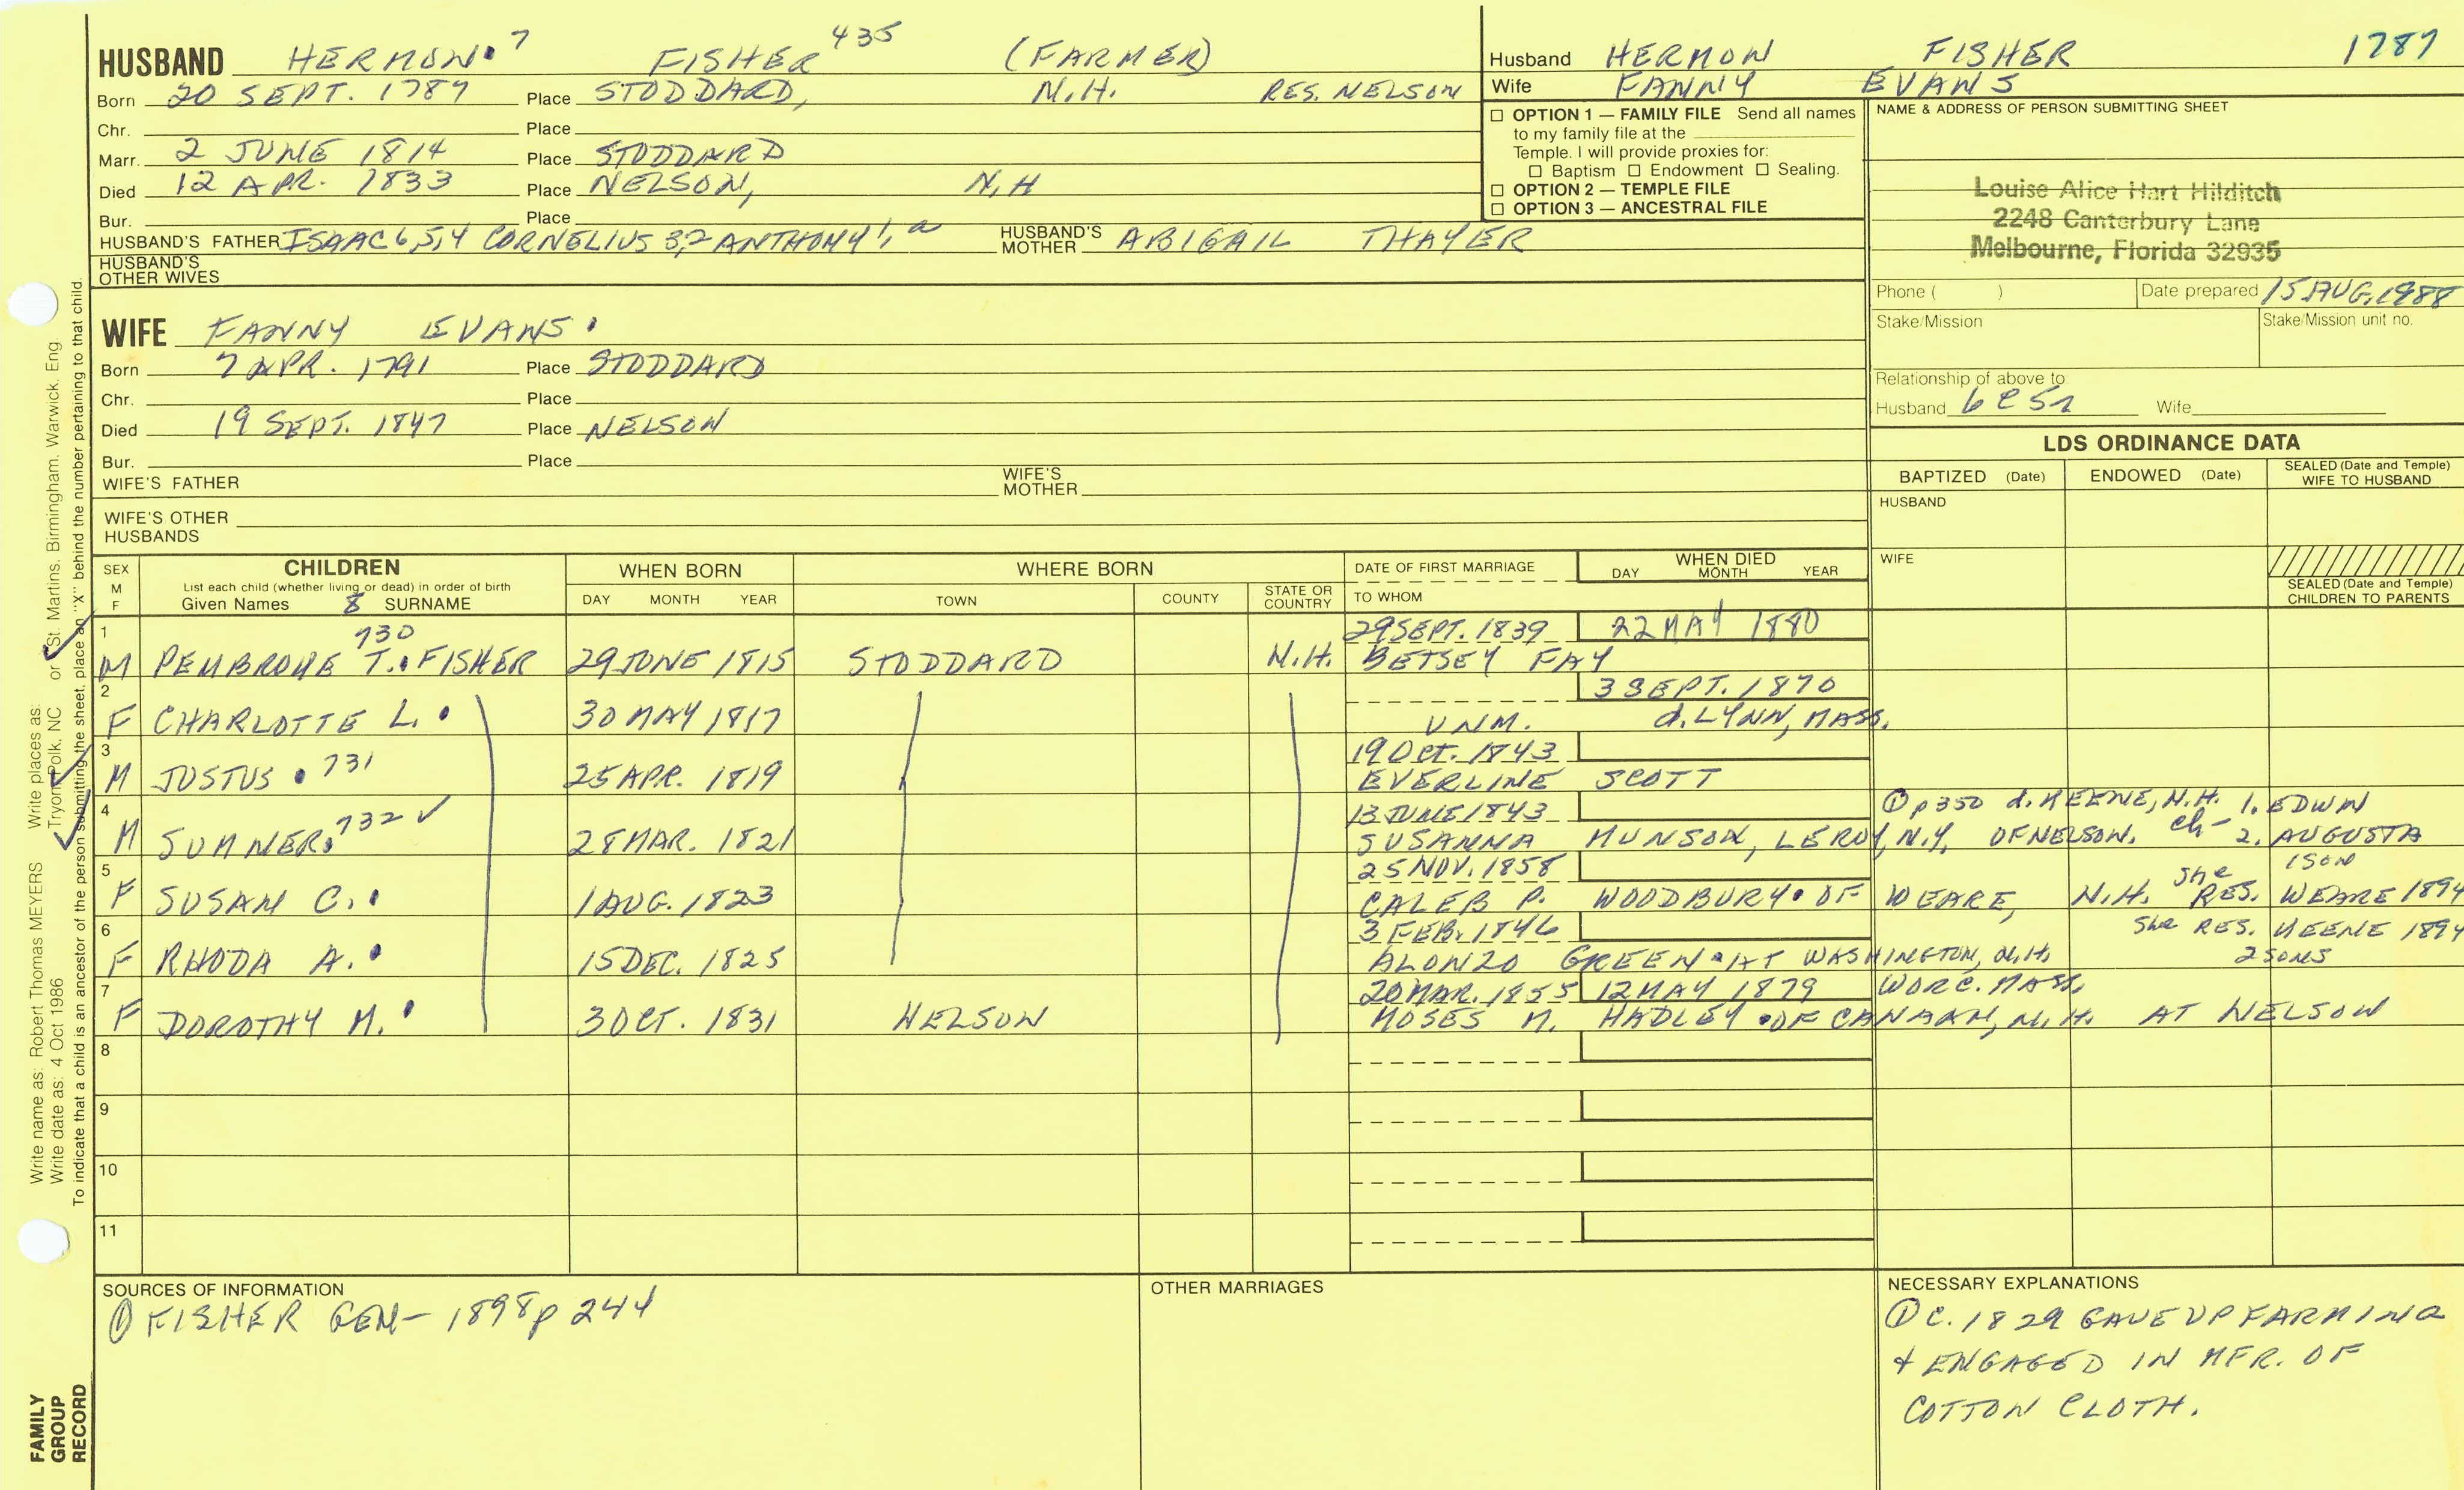 HUSBAND HERMON 7 FISHER 435 (FARMER)
Born 20 SEPT. 1787 Place STODDARD, N.H. RES. NELSON
Chr. Place
Marr. 2 JUNE 1814 Place STODDARD
Died 12 APR. 1833 Place NELSON, N.H
Bur. Place
HUSBAND'S FATHER ISAAC 6,5,4 CORNELIUS 3,2 ANTHONY 1, a HUSBAND'S MOTHER ABIGAIL THAYER
HUSBAND'S OTHER WIVES
Husband HERMON FISHER 1787
Wife FANNY EVANS
☐ OPTION 1 — FAMILY FILE Send all names
to my family file at the
Temple. I will provide proxies for:
☐ Baptism ☐ Endowment ☐ Sealing.
☐ OPTION 2 — TEMPLE FILE
☐ OPTION 3 — ANCESTRAL FILE
NAME & ADDRESS OF PERSON SUBMITTING SHEET
Louise Alice Hart Hilditch
2248 Canterbury Lane
Melbourne, Florida 32935
Phone ( ) Date prepared 15 AUG, 1988
Stake/Mission Stake/Mission unit no.
Relationship of above to
Husband 6C5R Wife
WIFE FANNY EVANS.
Born 7 APR. 1791 Place STODDARD
Chr. Place
Died 19 SEPT. 1847 Place NELSON
Bur. Place
WIFE'S FATHER WIFE'S MOTHER
WIFE'S OTHER HUSBANDS
LDS ORDINANCE DATA
BAPTIZED (Date) ENDOWED (Date) SEALED (Date and Temple) WIFE TO HUSBAND
HUSBAND
WIFE
SEALED (Date and Temple) CHILDREN TO PARENTS
SEX M F
CHILDREN
List each child (whether living or dead) in order of birth
Given Names 8 SURNAME
WHEN BORN
DAY MONTH YEAR
WHERE BORN
TOWN COUNTY STATE OR COUNTRY
DATE OF FIRST MARRIAGE
TO WHOM
WHEN DIED
DAY MONTH YEAR
1 730 29 SEPT. 1839 22 MAY 1880
M PEMBROKE T. FISHER 29 JUNE 1815 STODDARD N.H. BETSEY FAY
2 3 SEPT. 1870
F CHARLOTTE L. 30 MAY 1817 UNM. d. LYNN, MASS.
3 19 OCT. 1843
M JUSTUS 731 25 APR. 1819 EVERLINE SCOTT
4 13 JUNE 1843 ① p350 d. KEENE, N.H. 1. EDWIN
M SUMNER 732 ✓ 28 MAR. 1821 SUSANNA MUNSON, LEROY, N.Y. OF NELSON. ch- 2. AUGUSTA
5 25 NOV. 1858 1 SON
F SUSAN C. 1 AUG. 1823 CALEB P. WOODBURY OF WEARE, N.H. She RES. WEARE 1894
6 3 FEB. 1846 She RES. KEENE 1894
F RHODA A. 15 DEC. 1825 ALONZO GREEN AT WASHINGTON, N.H. 2 SONS
7 20 MAR. 1855 12 MAY 1879 WORC. MASS.
F DOROTHY M. 3 OCT. 1831 NELSON MOSES M. HADLEY OF CANAAN, N.H. AT NELSON
8
9
10
11
SOURCES OF INFORMATION
① FISHER GEN- 1898 p 244
OTHER MARRIAGES
NECESSARY EXPLANATIONS
① C. 1829 GAVE UP FARMING
& ENGAGED IN MFR. OF
COTTON CLOTH.
Write name as: Robert Thomas MEYERS Write places as: Tryon, Polk, NC or St. Martins, Birmingham, Warwick, Eng
Write date as: 4 Oct 1986
To indicate that a child is an ancestor of the person submitting the sheet, place an "X" behind the number pertaining to that child.
FAMILY
GROUP
RECORD